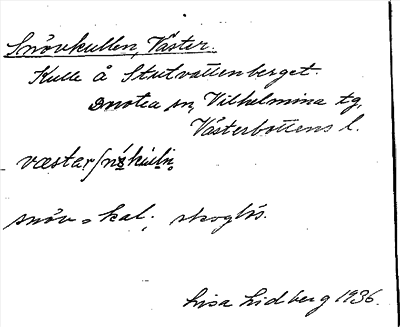 Snövkullen, Väster.
Kulle å Stutvattenberget.
Dorotea sn, Vilhelmina tg,
Västerbottens l.
væstar
snöv = kal, skoglös.
Lisa Lidberg 1936.